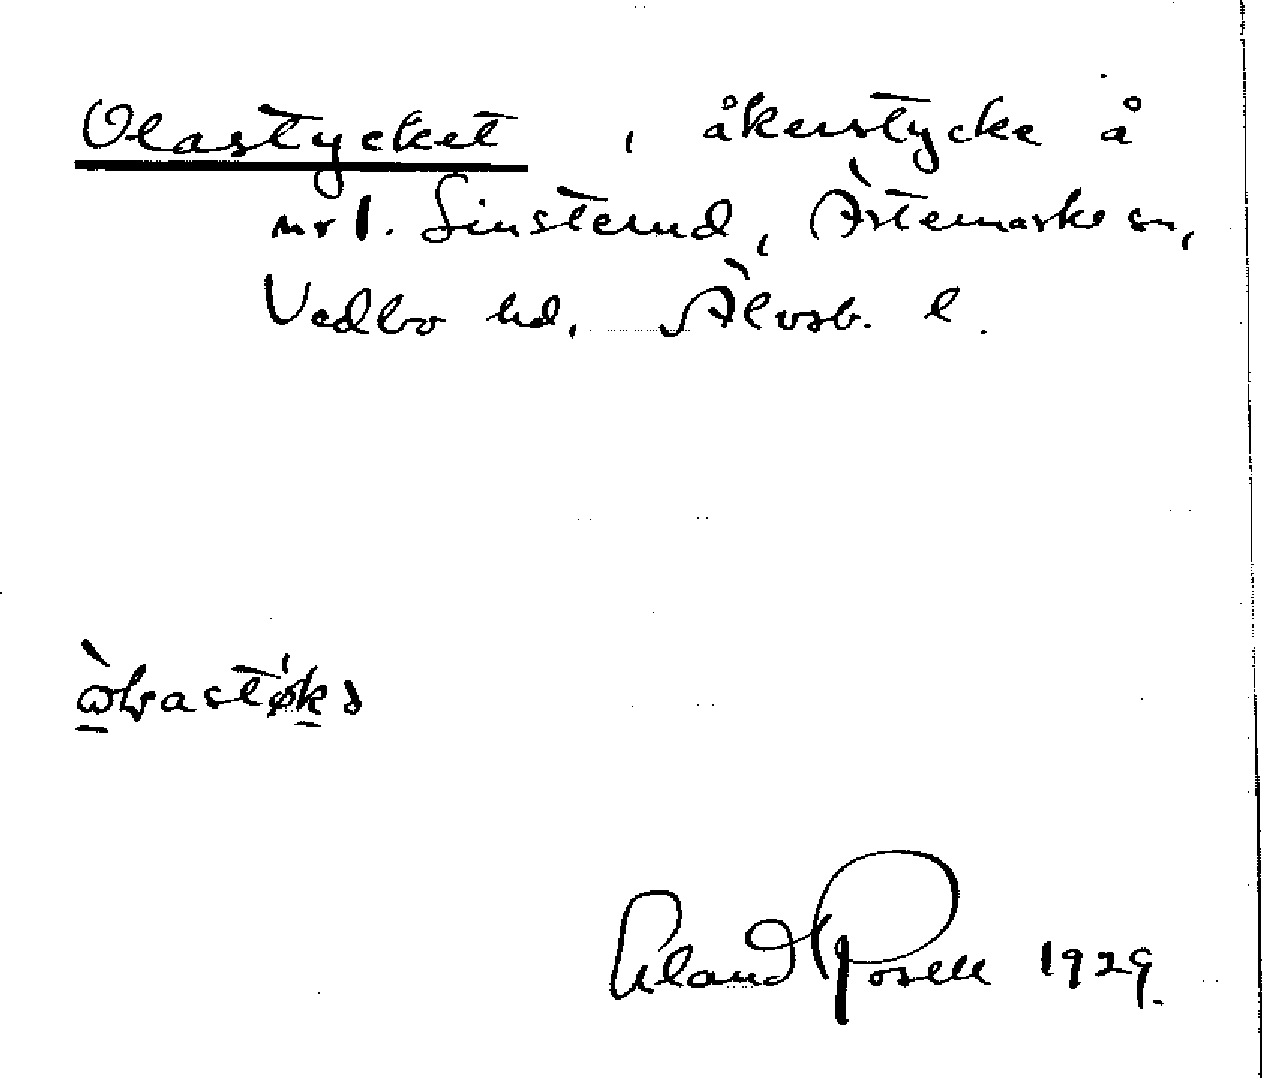 Olastycket, åkerstycke å
nr 1. Linsterud, Ärtemarks sn,
Vedbo hd. Älvsb. l.
Erland Rosell 1929.